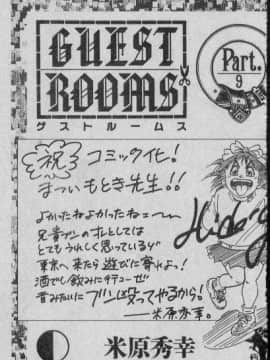 GUEST
ROOMS
ゲストルームス
Part.
9
祝 コミック化!
まつい もとき先生!!
よかったねよかったね
兄貴ブンのオレとしては
とてもうれしく思っているゾ
東京へ来たら遊びに寄れよ!
酒でも飲みに
昔みたいにブン殴ってやるから!
米原秀幸。
米原秀幸